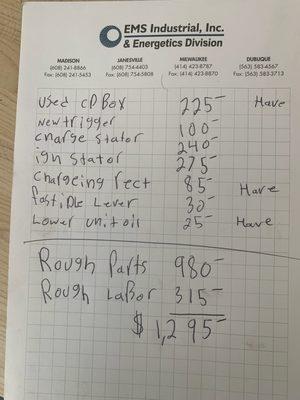 EMS Industrial, Inc.
& Energetics Division
MADISON JANESVILLE MILWAUKEE DUBUQUE
(608) 241-8866 (608) 754-4403 (414) 423-8787 (563) 583-4567
Fax: (608) 241-5453 Fax: (608) 754-5808 Fax: (414) 423-8870 Fax: (563) 583-3713
used CD Box 225- Have
New trigger 100-
charge stator 240-
ign stator 275-
chargeing rect 85- Have
fast idle Lever 30-
Lower unit oil 25- Have
Rough Parts 980-
Rough Labor 315-
$ 1,295-